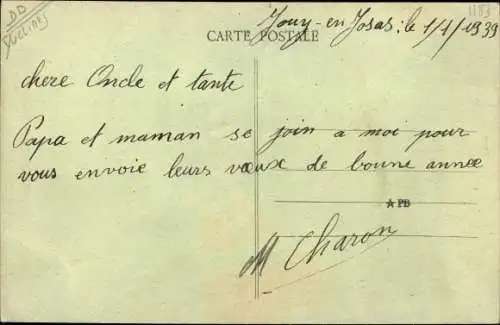 Jouy-en Josas: le 1/1/1939
CARTE POSTALE
chere Oncle et tante
Papa et maman se join a moi pour
vous envoie leurs vœux de bonne année
APB
M Charon